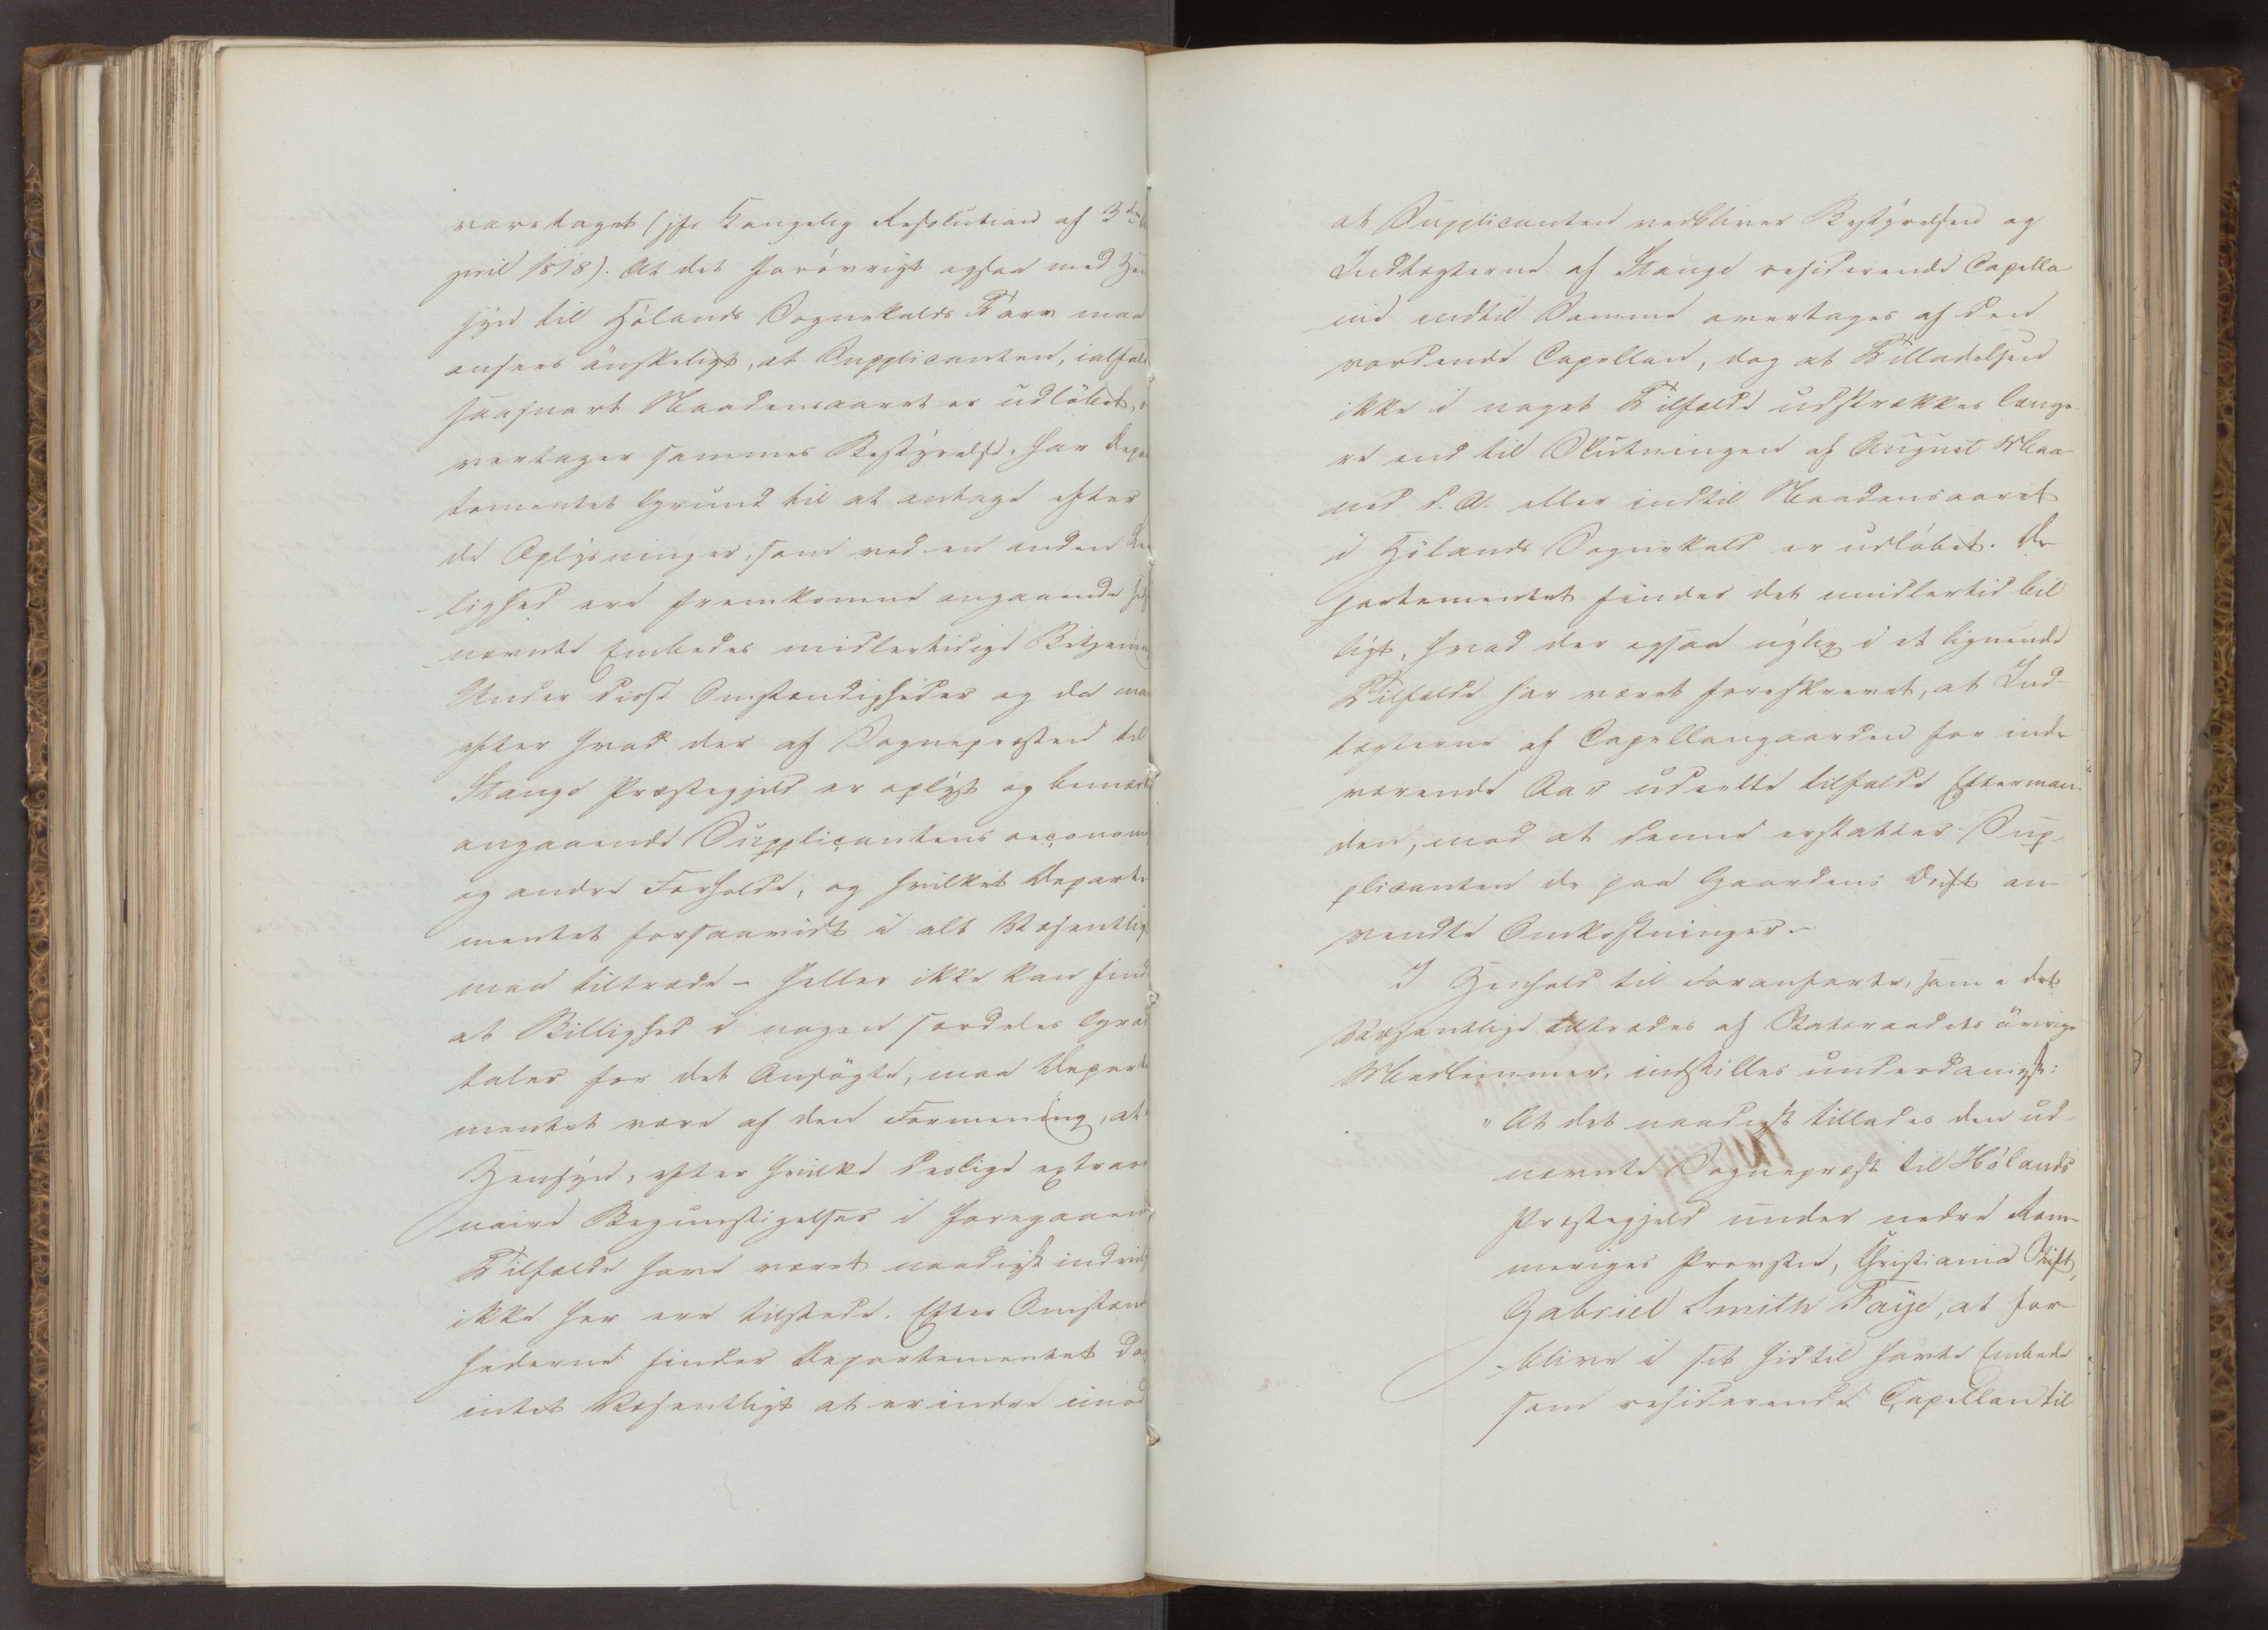 varetaget (jfr Kongelig Resolution af 3die
pril 1818). At det forøvrigt ogsaa med Hen
syn til Hölands Sognekalds Tarv maa
ansees önskeligt, at Supplicanten, ialfald
saasnart Naadensaaret er udlöbet, o
vertager sammes Bestyrelse, har Depa
tementet Grund til at antage efter
de Oplysninger, som ved en anden Lei
lighed ere fremkomne angaaende sidst
nævnte Embedes midlertidige Betjening
Under disse Omstændigheder og da man
efter hvad der af Sognepræsten til
Stange Præstegjeld er oplyst og bemærket
angaaende Supplicantens oeconom
og andre Forholde, og hvilket Departe
mentet forsaavidt i alt Væsentligt
maa tiltræde – heller ikke kan finde
at Billighed i nogen særdeles Grad
taler for det Ansögte, maa Departe
mentet være af den Formening, at
Hensyn, efter hvilke deslige extraor
naire Begunstigelser i foregaaende
Tilfælde have været naadigst indvil
ikke her ere tilstede. Efter Omstændig
hederne finder Departementet dog
intet Væsentligt at erindre imod
at Supplicanten vedbliver Bestyrelsen og
Indtægterne af Stange residerende Capella
nie indtil Samme overtages af den
vordende Capellan, dog at Tilladelsen
ikke i noget Tilfælde udstrækkes længe
re end til Slutningen af August Maa-
ned d. A. eller indtil Naadensaaret
i Hölands Sognekald er udlöbet. De
partementet finder det imidlertid bil
ligt, hvad der ogsaa nylig i et lignende
Tilfælde har været foreskrevet, at Ind-
tægterne af Capellangaarden for inde
værende Aar udeelte tilfalde Efterman-
den, mod at denne erstatter Sup-
plicanten de paa Gaardens Drift an-
vendte Omkostninger. –
I Henhold til Foranførte, som i det
Væsentlige tiltrædes af Statsraadets övrige
Medlemmer, indstilles underdanigst:
"At det naadigst tillades den ud-
nævnte Sognepræst til Hölands
Præstegjeld under nedre Rom-
meriges Provstie, Christiania Stift,
Gabriel Smith Faye, at for-
blive i sit hidtil havte Embede
som residerende Capellan til